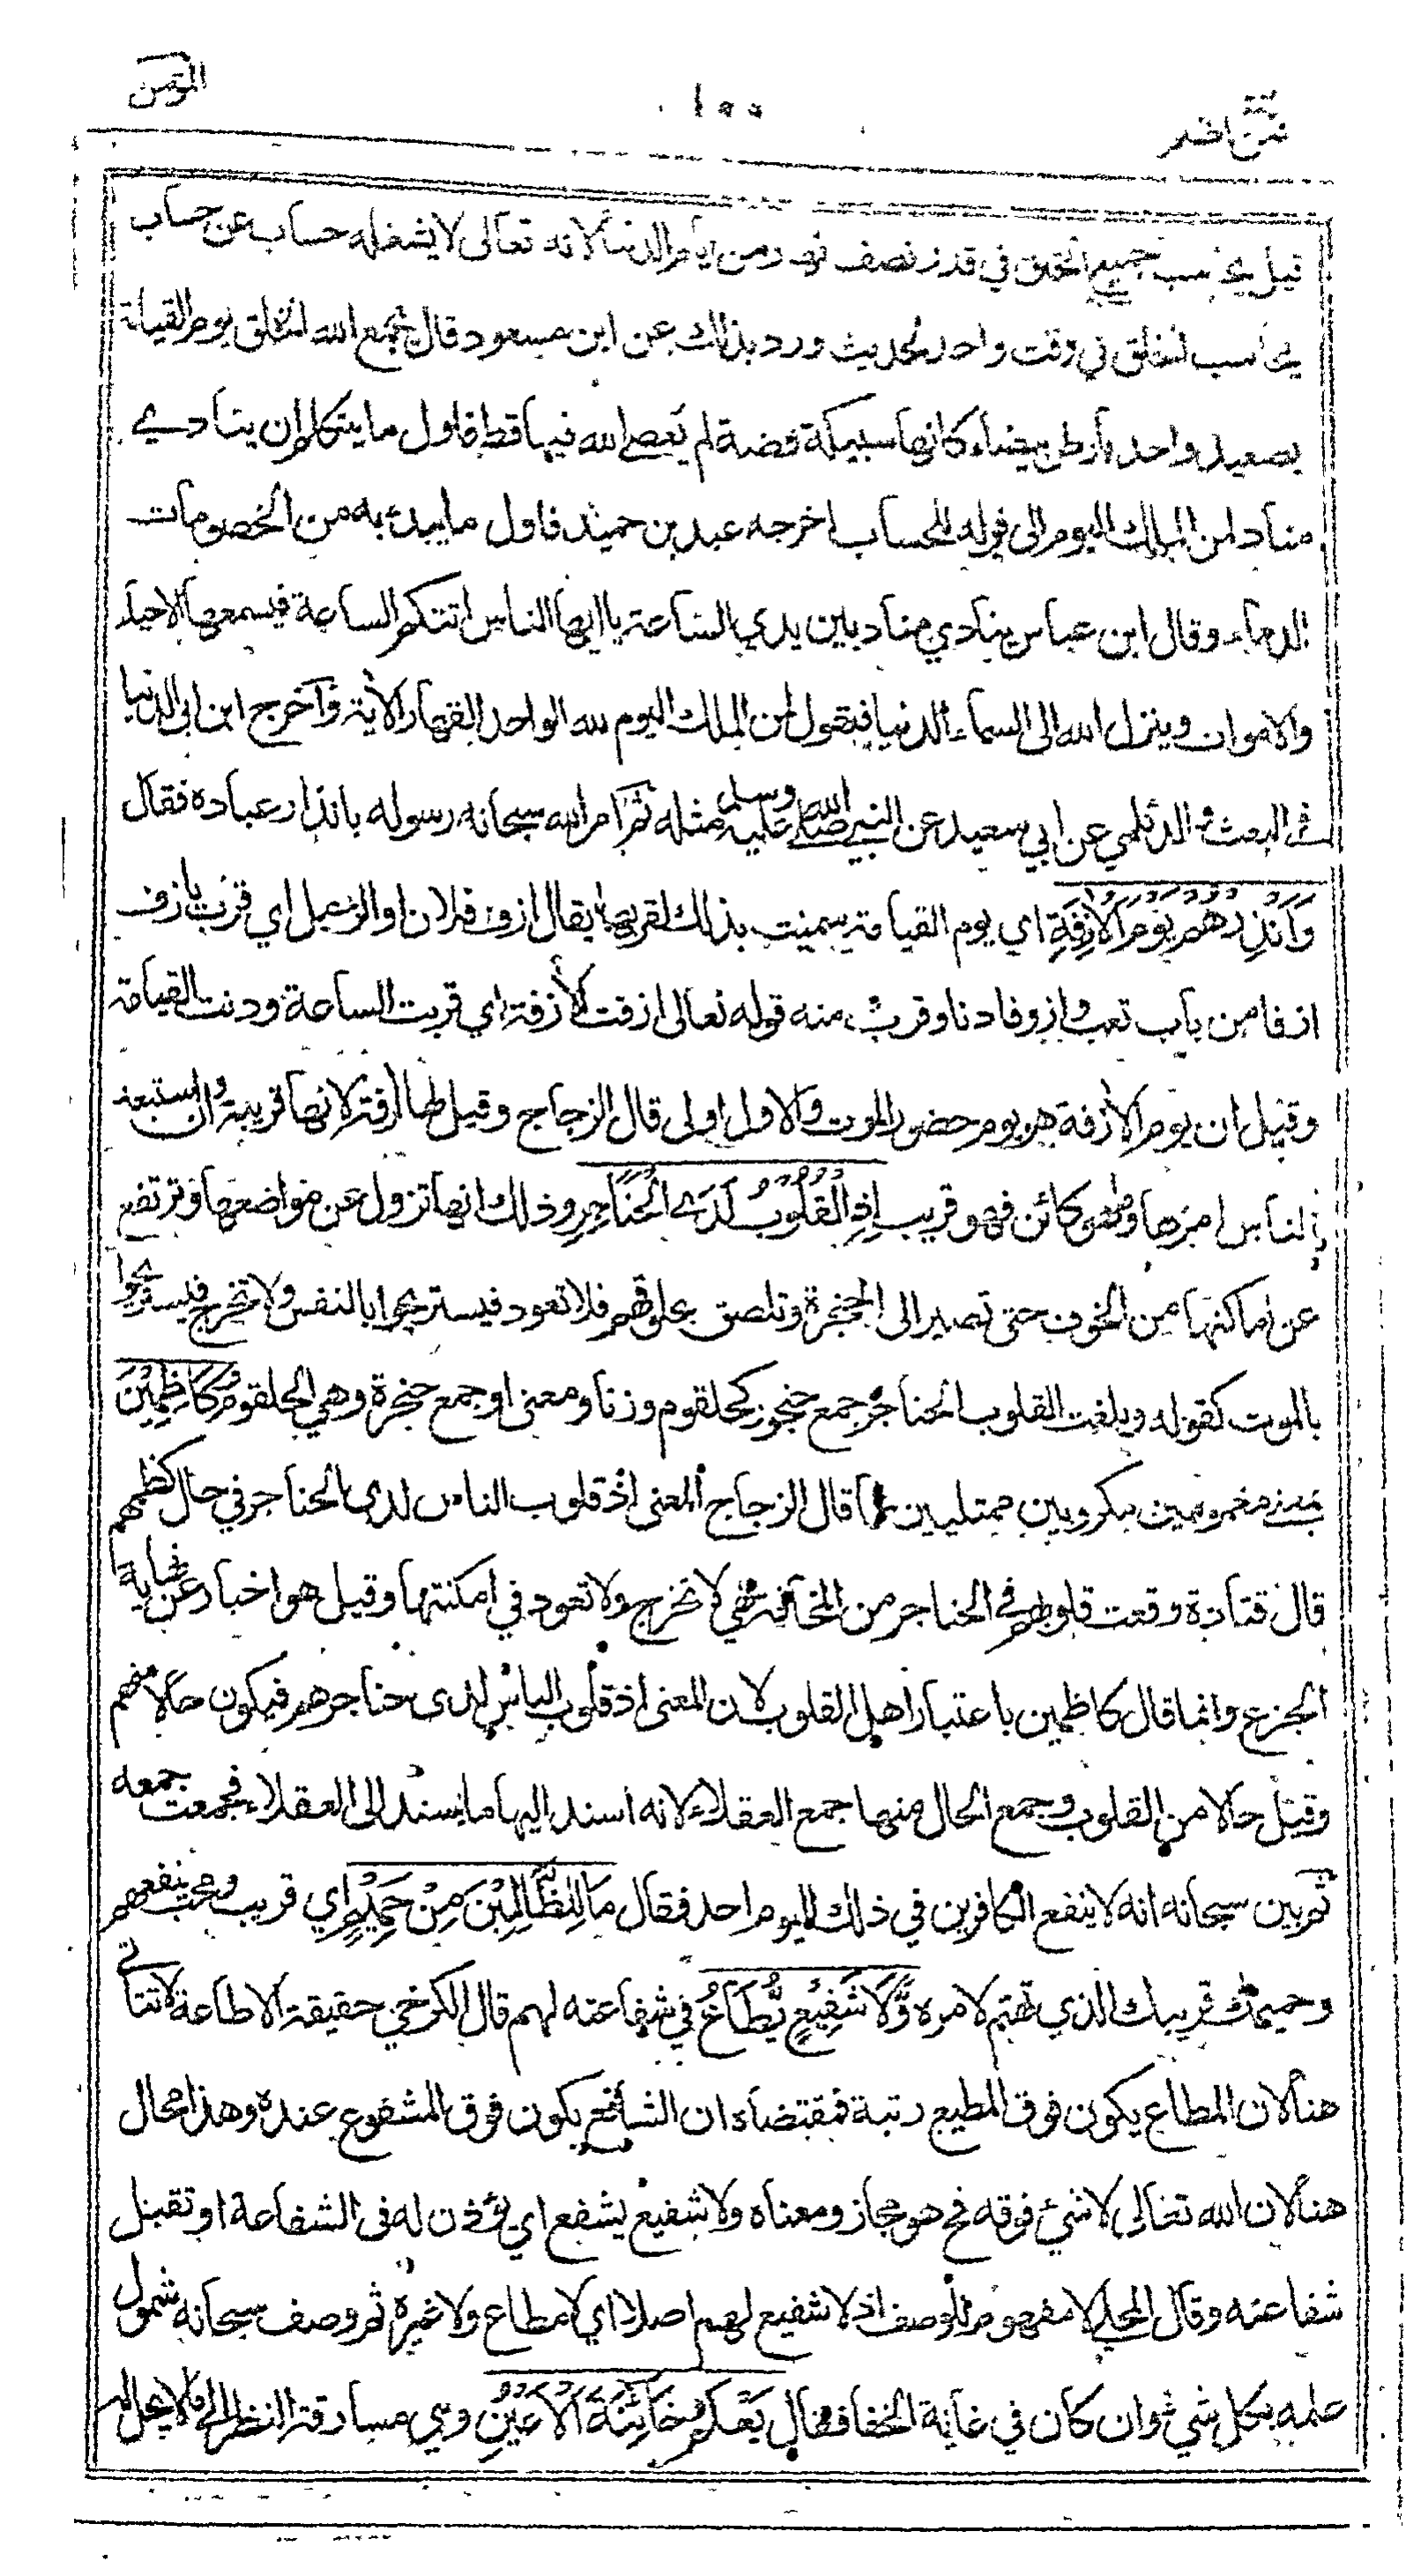 فمن اظلم
١٥٥
المؤمن
قيل يحاسب جميع الخلق في قدر نصف نهار من ايام الدنيا لانه تعالى لا يشغله حساب عن حساب
يحاسب الخلق في وقت واحد لحديث ورد بذلك عن ابن مسعود قال يجمع الله الخلق يوم القيامة
بصعيد واحد بارض بيضاء كانها سبيكة فضة لم يعص الله فيها قط فاول ما يتكلم ان ينادي
مناد لمن الملك اليوم الى قوله الحساب اخرجه عبد بن حميد فاول ما يبدء به من الخصومات
الدماء وقال ابن عباس ينادي مناد بين يدي الساعة يا ايها الناس اتتكم الساعة فيسمعها الاحياء
والاموات وينزل الله الى السماء الدنيا فيقول لمن الملك اليوم لله الواحد القهار الاية واخرج ابن ابي الدنيا
في البعث والديلمي عن ابي سعيد عن النبي صلى الله عليه وسلم مثله ثم امر الله سبحانه رسوله بانذار عباده فقال
وَاَنْذِرْهُمْ يَوْمَ الْاٰزِفَةِ اي يوم القيامة سميت بذلك لقربها يقال ازف فلان او الرحيل اي قرب يازف
ازفا من باب تعب وازوفا دنا وقرب منه قوله تعالى ازفت الأزفة اي قربت الساعة ودنت القيامة
وقيل ان يوم الأزفة هو يوم حضور الموت والاول اولى قال الزجاج وقيل لها ازفة لانها قريبة وان استبعد
الناس امرها وما هو كائن فهو قريب اِذِ الْقُلُوْبُ لَدَى الْحَنَاجِرِ وذلك انها تزول عن مواضعها وترتفع
عن اماكنها من الخوف حتى تصير الى الحنجرة وتلصق بحلوقهم فلا تعود فيستريحوا بالنفس ولا تخرج فيستريحوا
بالموت كقوله وبلغت القلوب الحناجر جمع حنجور كحلقوم وزنا ومعنى او جمع حنجرة وهي الحلقوم كَاظِمِيْنَ
مغمومين مكروبين ممتليين قال الزجاج المعنى اذ قلوب الناس لدى الحناجر في حال كظمهم
قال قتادة وقعت قلوبهم في الحناجر من المخافة فهي لا تخرج ولا تعود في امكنتها وقيل هو اخبار عن نهاية
الجزع وانما قال كاظمين باعتبار اهل القلوب لان المعنى اذ قلوب الناس لدى حناجرهم فيكون حالا منهم
وقيل حالا من القلوب وجمع الحال منها جمع العقلاء لانه اسند اليها ما يسند الى العقلاء فجمعت جمعه
ثم بين سبحانه انه لا ينفع الكافرين في ذلك اليوم احد فقال مَا لِلظّٰلِمِيْنَ مِنْ حَمِيْمٍ اي قريب ومحب ينفعهم
وحميمك قريبك الذي تهتم لامره وَّلَا شَفِيْعٍ يُّطَاعُ في شفاعته لهم قال الكرخي حقيقة الاطاعة لا تتأتى
هنا لان المطاع يكون فوق المطيع رتبة فمقتضاه ان الشافع يكون فوق المشفوع عنده وهذا محال
هنا لان الله تعالى لا شيء فوقه فح هو مجاز ومعناه ولا شفيع يشفع اي يؤذن له فى الشفاعة او تقبل
شفاعته وقال المحلي لا مفهوم للوصف اذ لا شفيع لهم اصلا اي لا مطاع ولا غيره ثم وصف سبحانه شمول
علمه بكل شيء وان كان في غاية الخفاء فقال يَعْلَمُ خَائِنَةَ الْاَعْيُنِ وهي مسارقة النظر الى ما لا يحل اليه